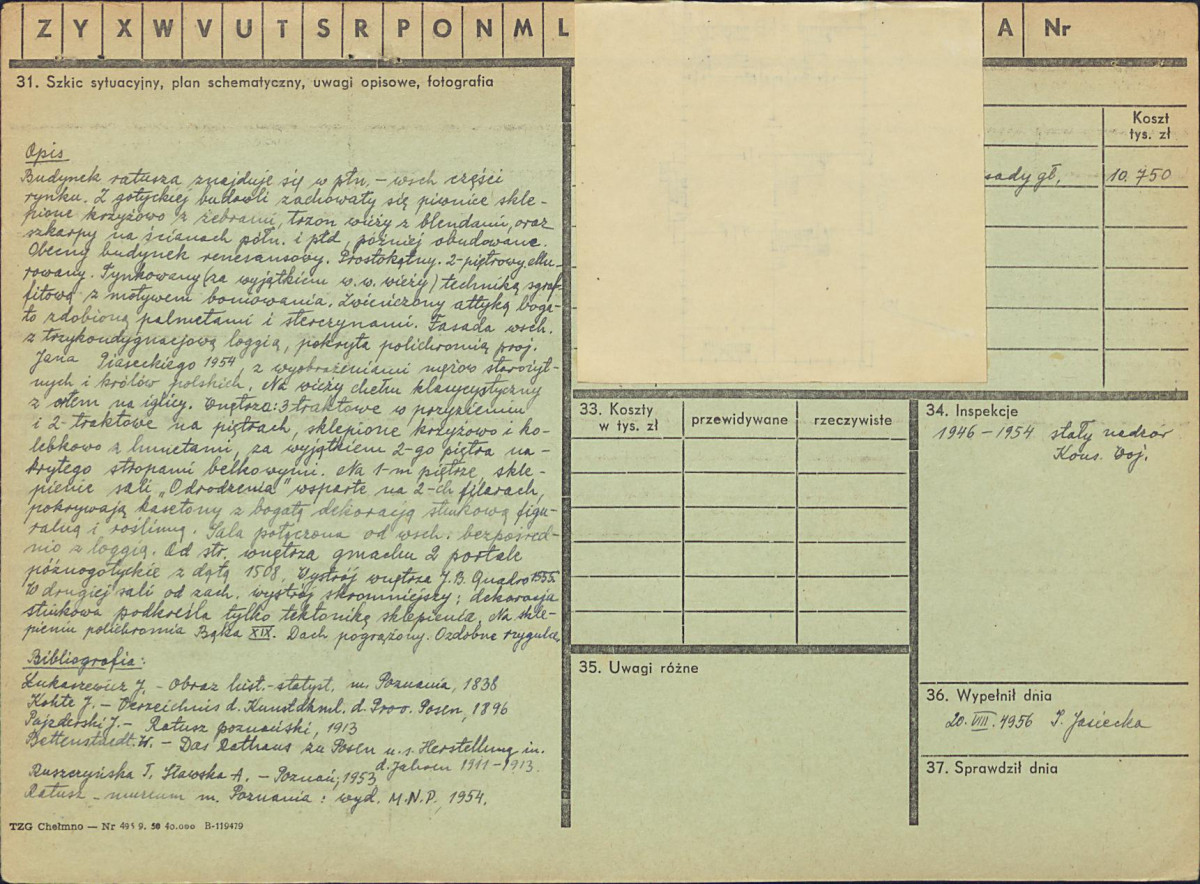 Z Y X W V U T S R P O N M L A Nr
31. Szkic sytuacyjny, plan schematyczny, uwagi opisowe, fotografia
Opis
Budynek ratusza znajduje się w płn. – wsch części
rynku. Z gotyckiej budowli zachowały się piwnice skle-
pione krzyżowo z żebrami, trzon wieży z blendami, oraz
szkarpy na ścianach półn. i płd, później obudowane.
Obecny budynek renesansowy. Prostokątny. 2-piętrowy, mu-
rowany. Tynkowany (za wyjątkiem w.w. wieży) techniką sgraf-
fitową z motywem boniowania. Zwieńczony attyką boga-
to zdobioną palmetami i sterczynami. Fasada wsch.
z trzykondygnacjową loggią, pokryta polichromią proj.
Jana Piaseckiego 1954, z wyobrażeniami mężów starożyt-
nych i królów polskich. Na wieży chełm klasycystyczny
z orłem na iglicy. Wnętrza: 3 traktowe w przyziemiu
i 2-traktowe na piętrach, sklepione krzyżowo i ko-
lebkowo z lunetami, za wyjątkiem 2-go piętra na-
krytego stropami belkowymi. Na 1-m piętrze, skle-
pienie sali "Odrodzenia" wsparte na 2-ch filarach,
pokrywają kasetony z bogatą dekoracją stiukową figu-
ralną i roślinną. Sala połączona od wsch. bezpośred-
nio z loggią. Od str. wnętrza gmachu 2 portale
późnogotyckie z datą 1508. Wystrój wnętrza J.B. Quadro 1555.
W drugiej sali od zach. wystrój skromniejszy; dekoracja
stiukowa podkreśla tylko tektonikę sklepienia. Na skle-
pieniu polichromia Bąka XIX. Dach pogrążony. Ozdobne rzygulce.
Bibliografia:
Łukaszewicz J. – Obraz hist.-statyst. m. Poznania, 1838
Kohte J. – Verzeichnis d. Kunstdkml. d. Prov. Posen, 1896
Pajzderski J. – Ratusz poznański, 1913
Bettenstaedt. W. – Das Rathaus zu Posen u. s. Herstellung in.
d. Jahren 1911–1913.
Ruszczyńska T. Sławska A. – Poznań, 1953
Ratusz – muzeum m. Poznania: wyd. M.N.P., 1954.
TZG Chełmno — Nr 495 9. 50 40.000 B-119479
Koszt
tys. zł
sady gł. 10.750
33. Koszty
w tys. zł
przewidywane
rzeczywiste
34. Inspekcje
1946 – 1954 stały nadzór
Kons. Woj.
35. Uwagi różne
36. Wypełnił dnia
20. VIII. 1956 I. Jasiecka
37. Sprawdził dnia